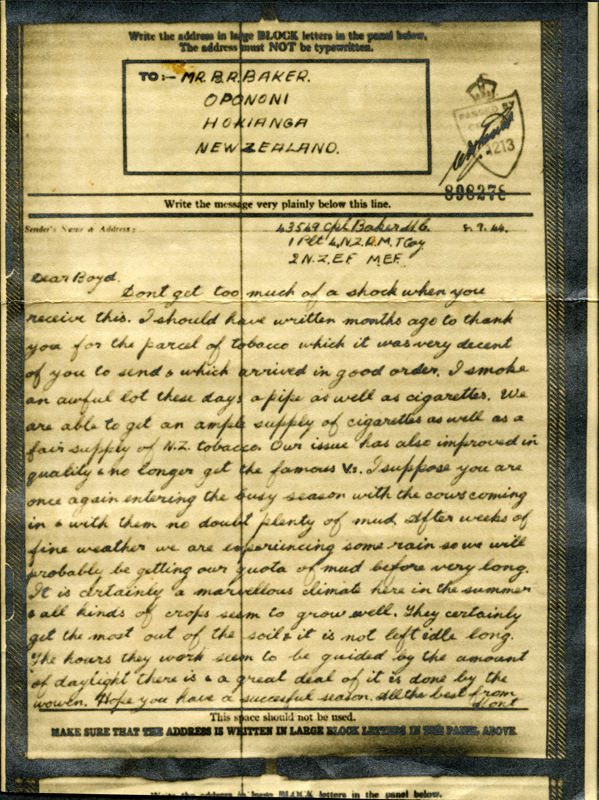 Write the address in large BLOCK letters in the panel below.
The address must NOT be typewritten.
TO:- MR. B.R. BAKER.
OPONONI
HOKIANGA
NEW ZEALAND.
PASSED BY
1213
898278
Write the message very plainly below this line.
Sender's Name & Address:
43549 Cpl. Baker H.C. 5.9.44.
1 Plt 4 N.Z. R.M.T Coy
2 N.Z.E.F M.E.F.
Dear Boyd.
Dont get too much of a shock when you
receive this. I should have written months ago to thank
you for the parcel of tobacco which it was very decent
of you to send & which arrived in good order. I smoke
an awful lot these days a pipe as well as cigarettes. We
are able to get an ample supply of cigarettes as well as a
fair supply of N.Z. tobacco. Our issue has also improved in
quality & no longer get the famous Vs. I suppose you are
once again entering the busy season with the cows coming
in & with them no doubt plenty of mud. After weeks of
fine weather we are experiencing some rain so we will
probably be getting our quota of mud before very long.
It is certainly a marvellous climate here in the summer
& all kinds of crops seem to grow well. They certainly
get the most out of the soil & it is not left idle long.
The hours they work seem to be guided by the amount
of daylight there is & a great deal of it is done by the
women. Hope you have a succesful season. All the best from
This space should not be used.
MAKE SURE THAT THE ADDRESS IS WRITTEN IN LARGE BLOCK LETTERS IN THE PANEL ABOVE.
Write the address in large BLOCK letters in the panel below.